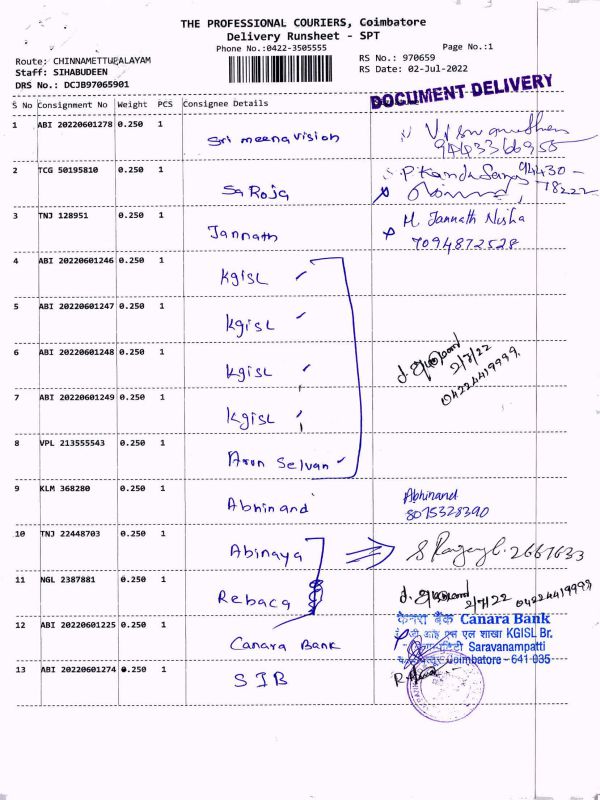 THE PROFESSIONAL COURIERS, Coimbatore
Delivery Runsheet - SPT
Phone No.:0422-3505555
Page No.:1
Route: CHINNAMETTUPALAYAM
RS No.: 970659
Staff: SIHABUDEEN
RS Date: 02-Jul-2022
DRS No.: DCJB97065901
DOCUMENT DELIVERY
S No Consignment No Weight PCS Consignee Details
1 ABI 20220601278 0.250 1 Sri meena vision
2 TCG 50195810 0.250 1 SaRoja 94430-78222
3 TNJ 128951 0.250 1 Jannath M. Jannath Nisha
7094872528
4 ABI 20220601246 0.250 1 KgiSL
5 ABI 20220601247 0.250 1 KgiSL
6 ABI 20220601248 0.250 1 KgiSL 2/7/22
04224419999
7 ABI 20220601249 0.250 1 KgiSL
8 VPL 213555543 0.250 1 Arun Selvan
9 KLM 368280 0.250 1 Abhinand Abhinand
8075328390
10 TNJ 22448703 0.250 1 Abinaya 2667633
11 NGL 2387881 0.250 1 Rebaca 2/7/22 04224419999
12 ABI 20220601225 0.250 1 Canara Bank
केनरा बैंक Canara Bank
जी आई एस एल शाखा KGISL Br.
Saravanampatti
Coimbatore - 641 035
13 ABI 20220601274 0.250 1 SIB